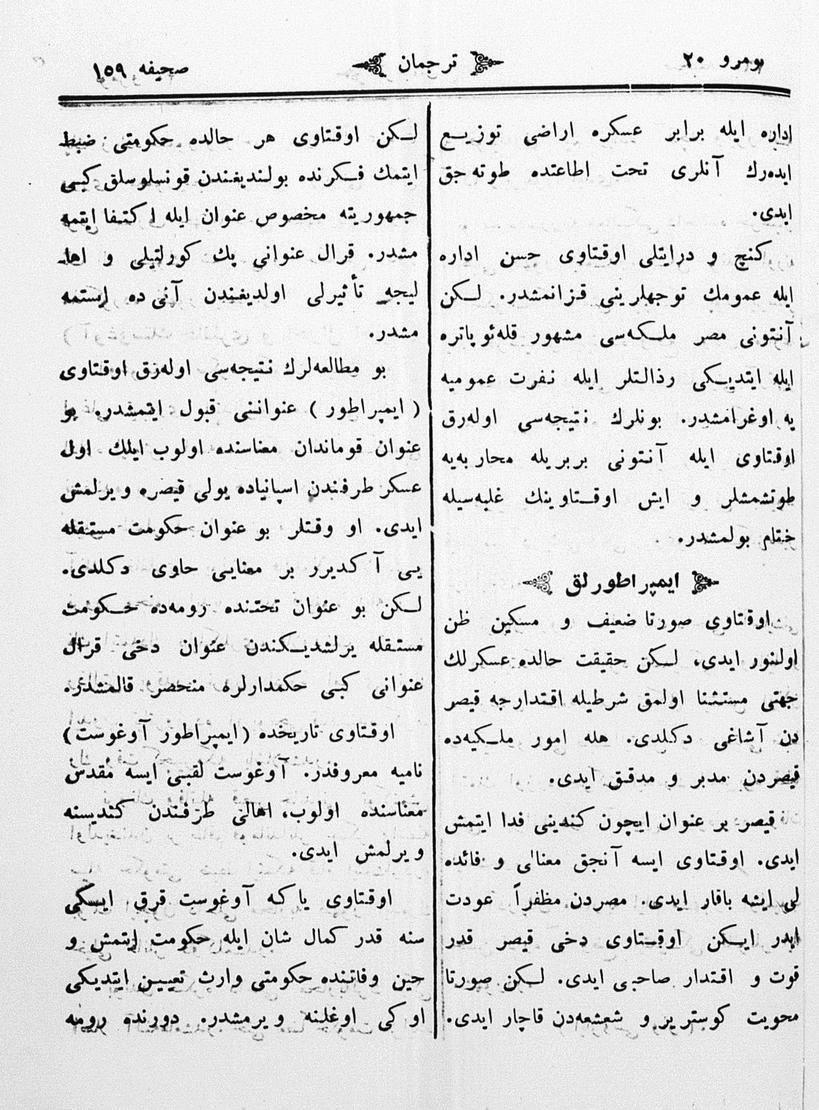 نومرو ٢٠
ترجمان
صحیفه ١٥٩
اداره ایله برابر عسکره اراضی توزیع
ایده‌رك آنلری تحت اطاعتده طوته‌جق
ایدی.
کنج و درایتلی اوقتاوی حسن اداره
ایله عمومك توجهلرینی قزانمشدر. لکن
آنتونی مصر ملکه‌سی مشهور قله‌ئوپاتره
ایله ایتدیکی رذالتلر ایله نفرت عمومیه
یه اوغرامشدر. بونلرك نتیجه‌سی اوله‌رق
اوقتاوی ایله آنتونی بربریله محاربه‌یه
طوتشمشلر و ایش اوقتاوینك غلبه‌سیله
ختام بولمشدر.
ایمپراطورلق
اوقتاوی صورتا ضعیف و مسکین ظن
اولنور ایدی، لکن حقیقت حالده عسکرلك
جهتی مستثنا اولمق شرطیله اقتدارجه قیصر
دن آشاغی دکلدی. هله امور ملکیه‌ده
قیصردن مدبر و مدقق ایدی.
قیصر بر عنوان ایچون کندینی فدا ایتمش
ایدی. اوقتاوی ایسه آنجق معنالی و فائده
لی ایشه باقار ایدی. مصردن مظفراً عودت
ایدر ایکن اوقتاوی دخی قیصر قدر
قوت و اقتدار صاحبی ایدی. لکن صورتا
محویت کوستریر و شعشعه‌دن قاچار ایدی.
لکن اوقتاوی هر حالده حکومتی ضبط
ایتمك فکرنده بولندیغندن قونسلوسلق کبی
جمهوریته مخصوص عنوان ایله اکتفا ایتمه
مشدر. قرال عنوانی پك کورلتیلی و اها
لیجه تأثیرلی اولدیغندن آنی ده ایستمه
مشدر.
بو مطالعه‌لرك نتیجه‌سی اوله‌رق اوقتاوی
( ایمپراطور ) عنواننی قبول ایتمشدر. بو
عنوان قوماندان معناسنده اولوب ایلك اول
عسکر طرفندن اسپانیاده یولی قیصره ویرلمش
ایدی. او وقتلر بو عنوان حکومت مستقله
یی آکدیرر بر معنایی حاوی دکلدی.
لکن بو عنوان تحتنده رومه‌ده حکومت
مستقله یرلشدیکندن عنوان دخی قرال
عنوانی کبی حکمدارلره منحصر قالمشدر.
اوقتاوی تاریخده (ایمپراطور آوغوست)
نامیه معروفدر. آوغوست لقبی ایسه مقدس
معناسنده اولوب، اهالی طرفندن کندیسنه
ویرلمش ایدی.
اوقتاوی یاکه آوغوست قرق ایسکی
سنه قدر کمال شان ایله حکومت ایتمش و
حین وفاتنده حکومتی وارث تعیین ایتدیکی
اوکی اوغلنه ویرمشدر. دورنده رومه